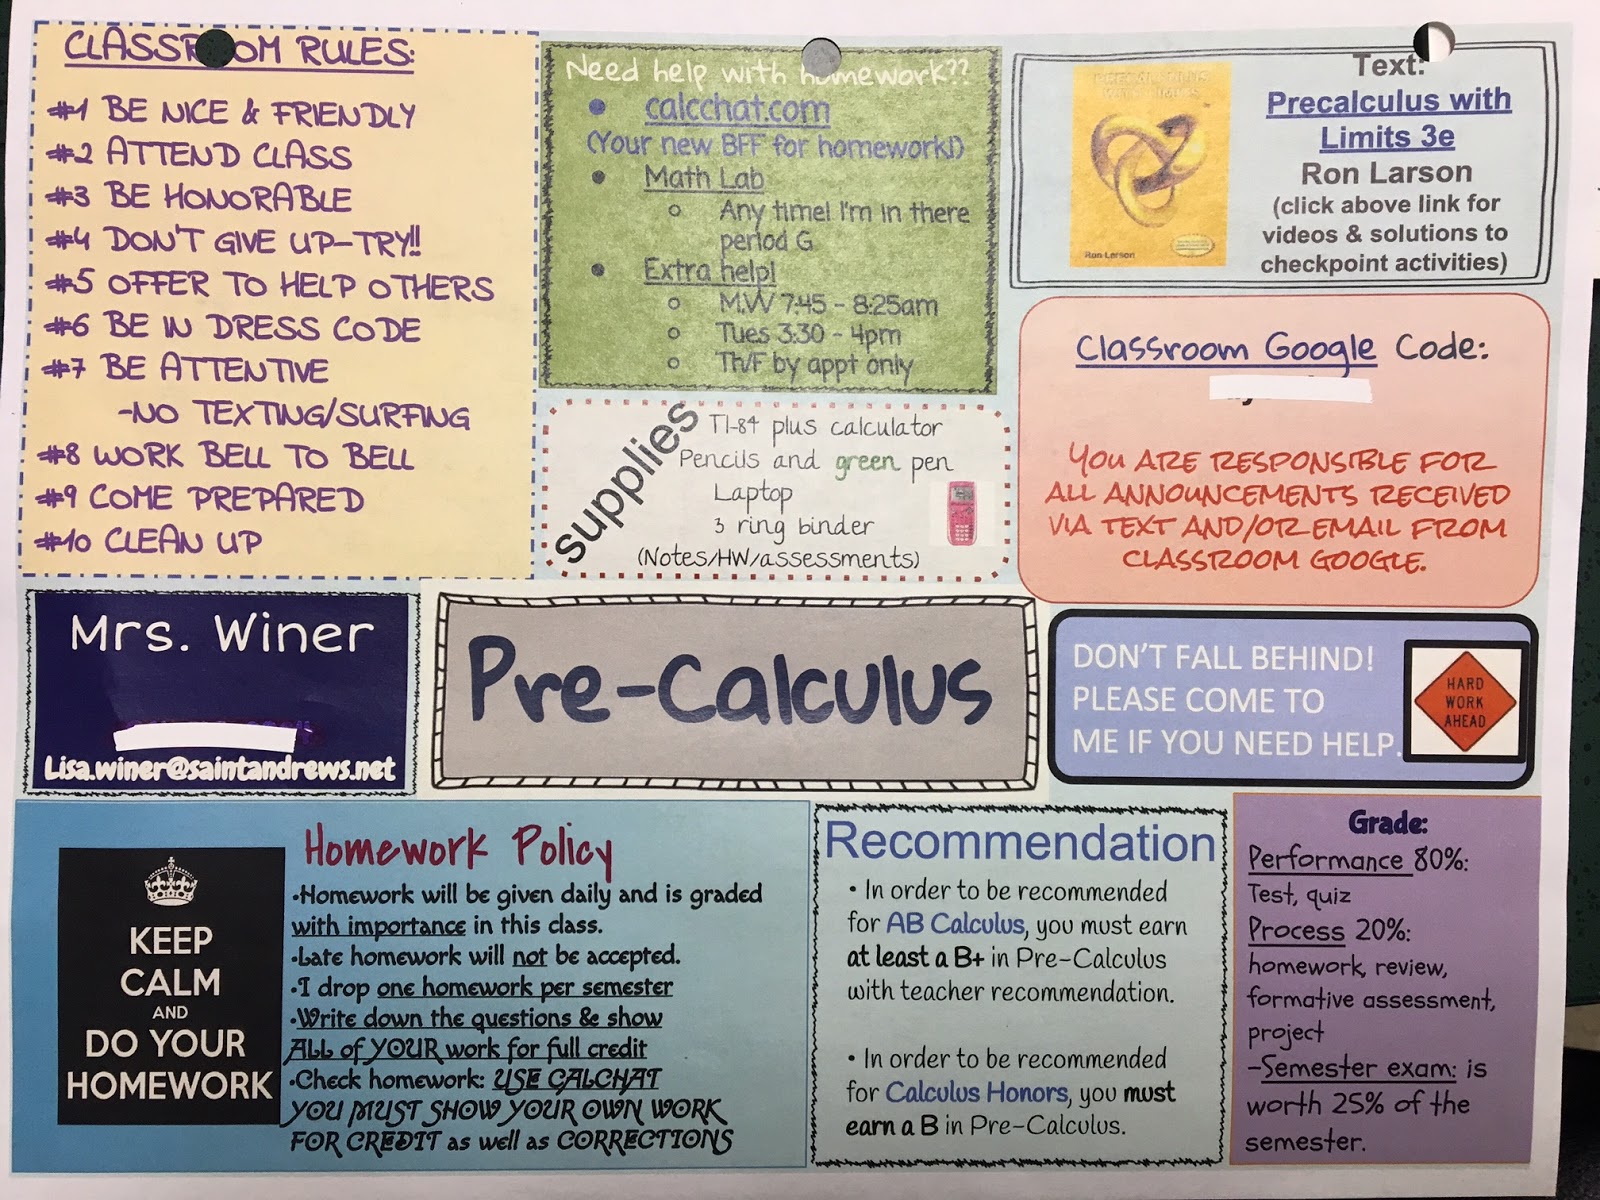 CLASSROOM RULES:
#1 BE NICE & FRIENDLY
#2 ATTEND CLASS
#3 BE HONORABLE
#4 DON'T GIVE UP-TRY!!
#5 OFFER TO HELP OTHERS
#6 BE IN DRESS CODE
#7 BE ATTENTIVE
-NO TEXTING/SURFING
#8 WORK BELL TO BELL
#9 COME PREPARED
#10 CLEAN UP
Need help with homework??
• calcchat.com
(Your new BFF for homework!)
• Math Lab
o Any time! I'm in there
period G
• Extra help!
o M,W 7:45 - 8:25am
o Tues 3:30 - 4pm
o Th/F by appt only
Text:
Precalculus with
Limits 3e
Ron Larson
(click above link for
videos & solutions to
checkpoint activities)
PRECALCULUS
WITH LIMITS
Ron Larson
supplies
TI-84 plus calculator
Pencils and green pen
Laptop
3 ring binder
(Notes/HW/assessments)
Classroom Google Code:
YOU ARE RESPONSIBLE FOR
ALL ANNOUNCEMENTS RECEIVED
VIA TEXT AND/OR EMAIL FROM
CLASSROOM GOOGLE.
Mrs. Winer
Lisa.winer@saintandrews.net
Pre-Calculus
DON'T FALL BEHIND!
PLEASE COME TO
ME IF YOU NEED HELP.
HARD
WORK
AHEAD
KEEP
CALM
AND
DO YOUR
HOMEWORK
Homework Policy
•Homework will be given daily and is graded
with importance in this class.
•Late homework will not be accepted.
•I drop one homework per semester
•Write down the questions & show
ALL of YOUR work for full credit
•Check homework: USE CALCHAT
YOU MUST SHOW YOUR OWN WORK
FOR CREDIT as well as CORRECTIONS
Recommendation
• In order to be recommended
for AB Calculus, you must earn
at least a B+ in Pre-Calculus
with teacher recommendation.
• In order to be recommended
for Calculus Honors, you must
earn a B in Pre-Calculus.
Grade:
Performance 80%:
Test, quiz
Process 20%:
homework, review,
formative assessment,
project
-Semester exam: is
worth 25% of the
semester.